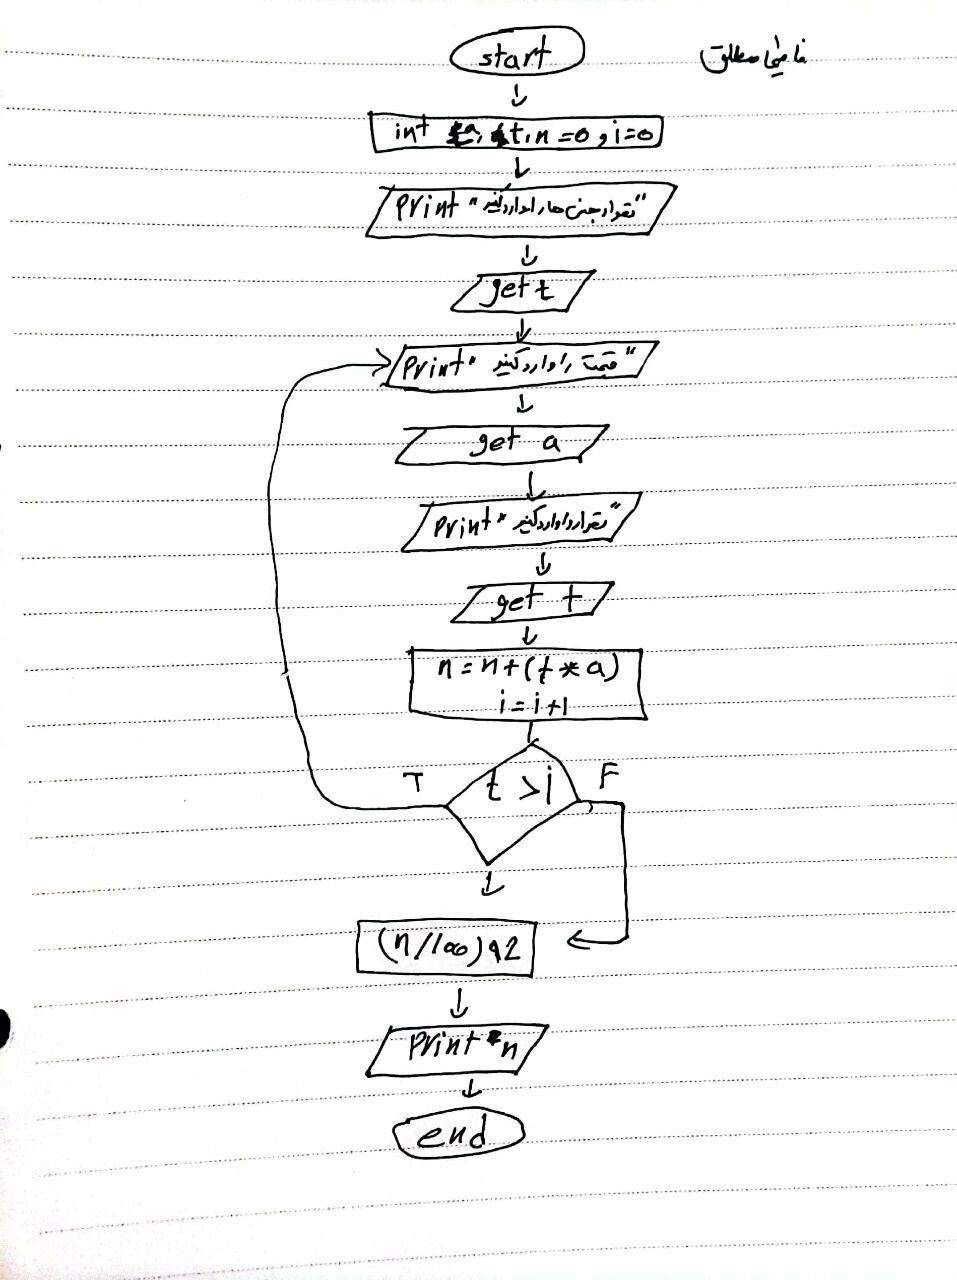 start
int a, t, n = 0, i = 0
Print "تعداد جنس ها را وارد کنید"
get t
Print "قیمت را وارد کنید"
get a
Print "تعداد را وارد کنید"
get t
n = n + (t * a)
i = i + 1
T
t > i
F
(n/100)92
Print n
end